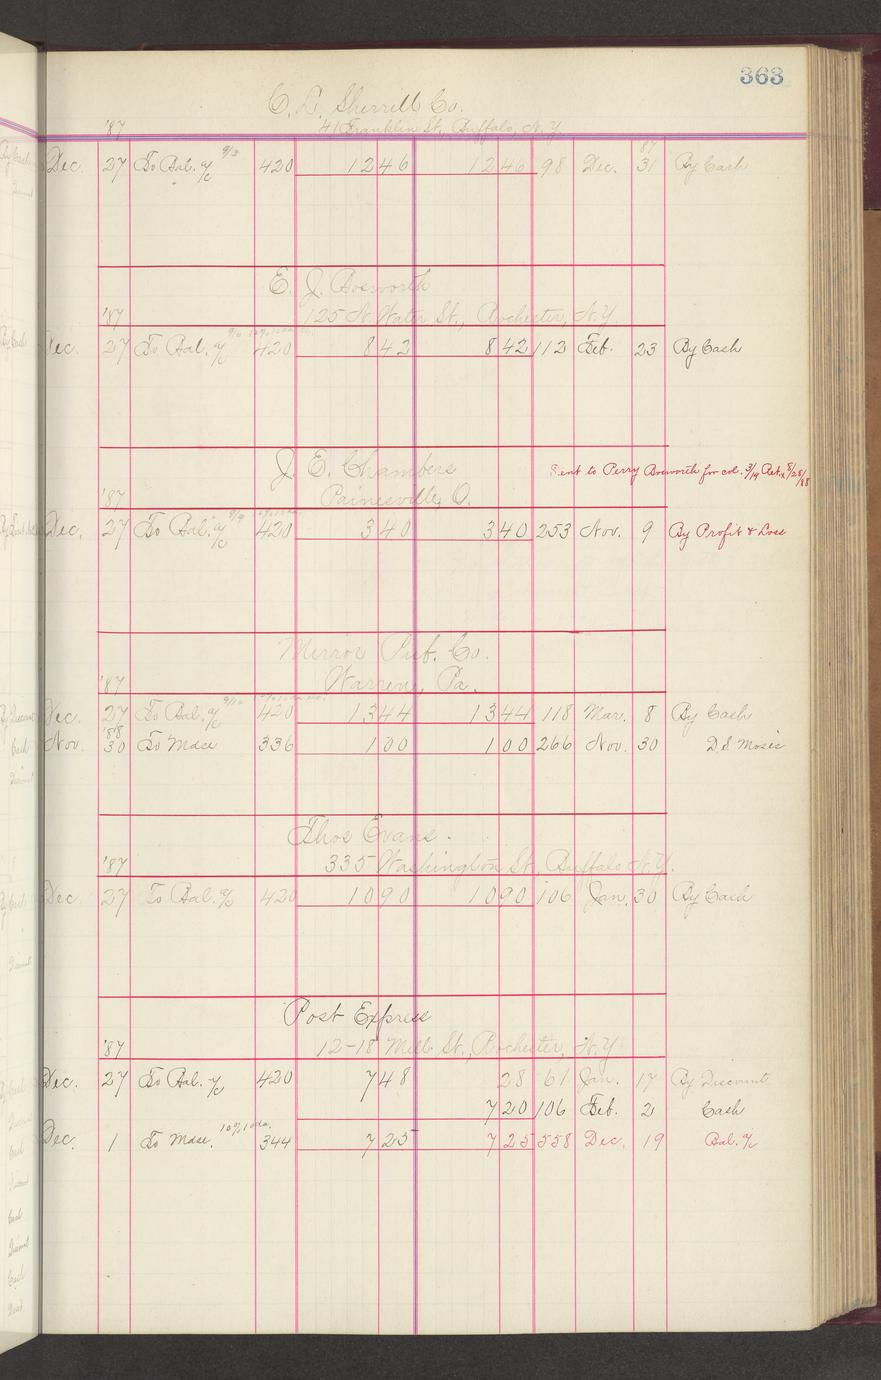 363
C. L. Sherrill Co.
'87 41 Franklin St., Buffalo, N.Y.
87
Dec. 27 To Bal. a/c 9/3 420 12 46 12 46 98 Dec. 31 By Cash
E. J. Bosworth
'87 125 N. Water St., Rochester, N.Y.
Dec. 27 To Bal. a/c 420 8 42 8 42 112 Feb. 23 By Cash
J. E. Chambers Sent to Perry Bosworth for col. 3/19 Ret. 8/28/88
'87 Painesville, O.
Dec. 27 To Bal. a/c 9/9 420 3 40 3 40 253 Nov. 9 By Profit & Loss
Mirror Pub. Co.
'87 Warren, Pa.
Dec. 27 To Bal. a/c 420 13 44 13 44 118 Mar. 8 By Cash
'88
Nov. 30 To Mdse 336 1 00 1 00 266 Nov. 30 D. S. Moses
Thos Evans.
'87 335 Washington St., Buffalo N.Y.
Dec. 27 To Bal. a/c 420 10 90 10 90 106 Jan. 30 By Cash
Post Express
'87 12-18 Mill St., Rochester, N.Y.
Dec. 27 To Bal. a/c 420 7 48 28 61 Jan. 17 By Discount
7 20 106 Feb. 2 Cash
Dec. 1 To Mdse. 10% 10 da. 344 7 25 7 25 558 Dec. 19 Bal. a/c